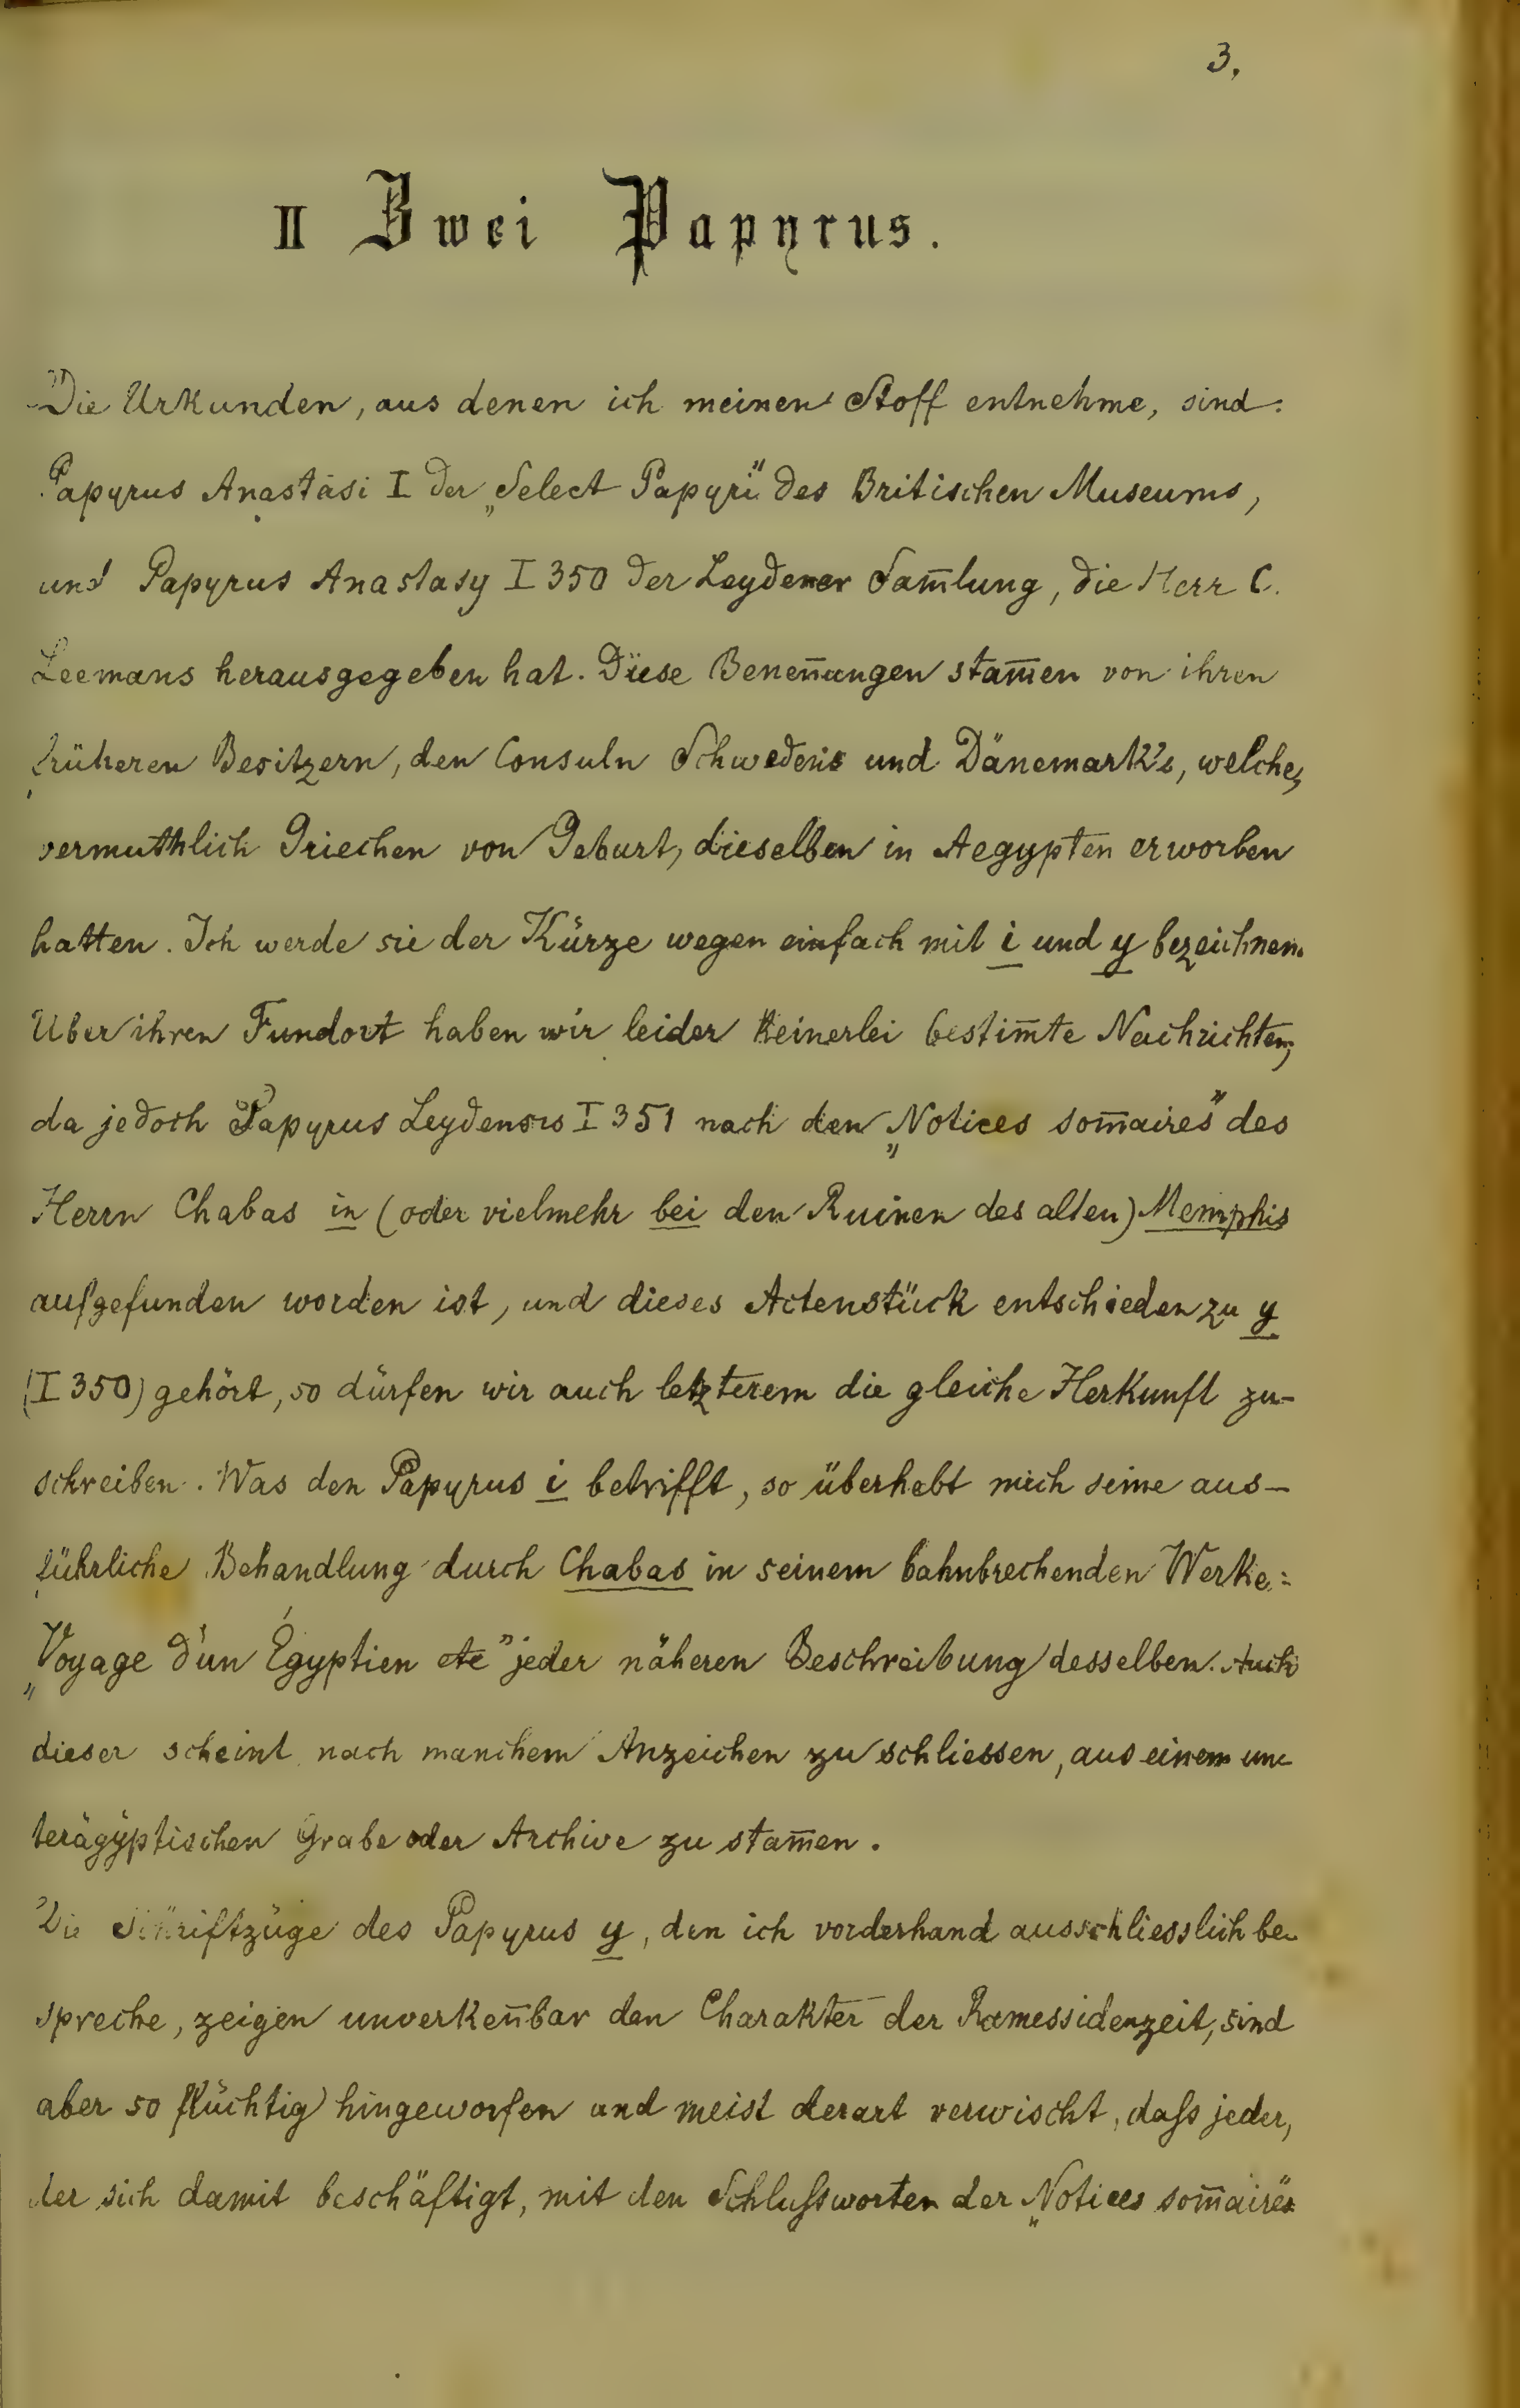 3.
II Zwei Papyrus.
Die Urkunden, aus denen ich meinen Stoff entnehme, sind:
Papyrus Anastasi I der „Select Papyri" des Britischen Museums,
und Papyrus Anastasy I 350 der Leydener Sam̅lung, die Herr C.
Leemans herausgegeben hat. Diese Benen̅ungen stam̅en von ihren
früheren Besitzern, den Consuln Schwedens und Dänemark's, welche,
vermuthlich Griechen von Geburt, dieselben in Aegypten erworben
hatten. Ich werde sie der Kürze wegen einfach mit i und y bezeichnen.
Über ihren Fundort haben wir leider keinerlei bestim̅te Nachrichten,
da jedoch Papyrus Leydensis I 351 nach den „Notices som̅aires" des
Herrn Chabas in (oder vielmehr bei den Ruinen des alten) Memphis
aufgefunden worden ist, und dieses Actenstück entschieden zu y
(I 350) gehört, so dürfen wir auch letzterem die gleiche Herkunft zu-
schreiben. Was den Papyrus i betrifft, so überhebt mich seine aus-
führliche Behandlung durch Chabas in seinem bahnbrechenden Werke:
„Voyage d'un Égyptien etc" jeder näheren Beschreibung desselben. Auch
dieser scheint nach manchem Anzeichen zu schliessen, aus einem un-
terägyptischen Grabe oder Archive zu stam̅en.
Die Schriftzüge des Papyrus y, den ich vorderhand ausschliesslich be-
spreche, zeigen unverken̅bar den Charakter der Ramessidenzeit, sind
aber so flüchtig hingeworfen und meist derart verwischt, daſs jeder,
der sich damit beschäftigt, mit den Schluſsworten der „Notices som̅aires"